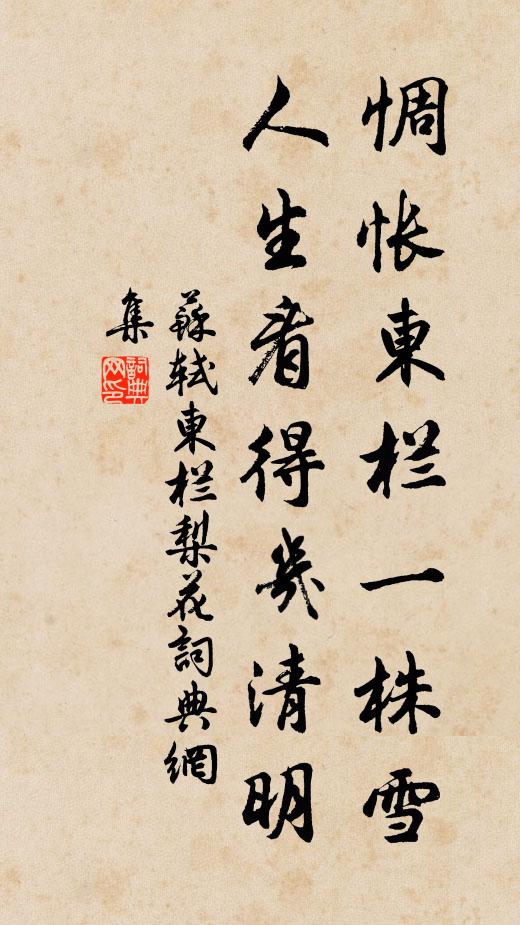 惆怅東栏一株雪
人生看得幾清明
蘇軾東栏梨花詞典網
集
詞典
网印